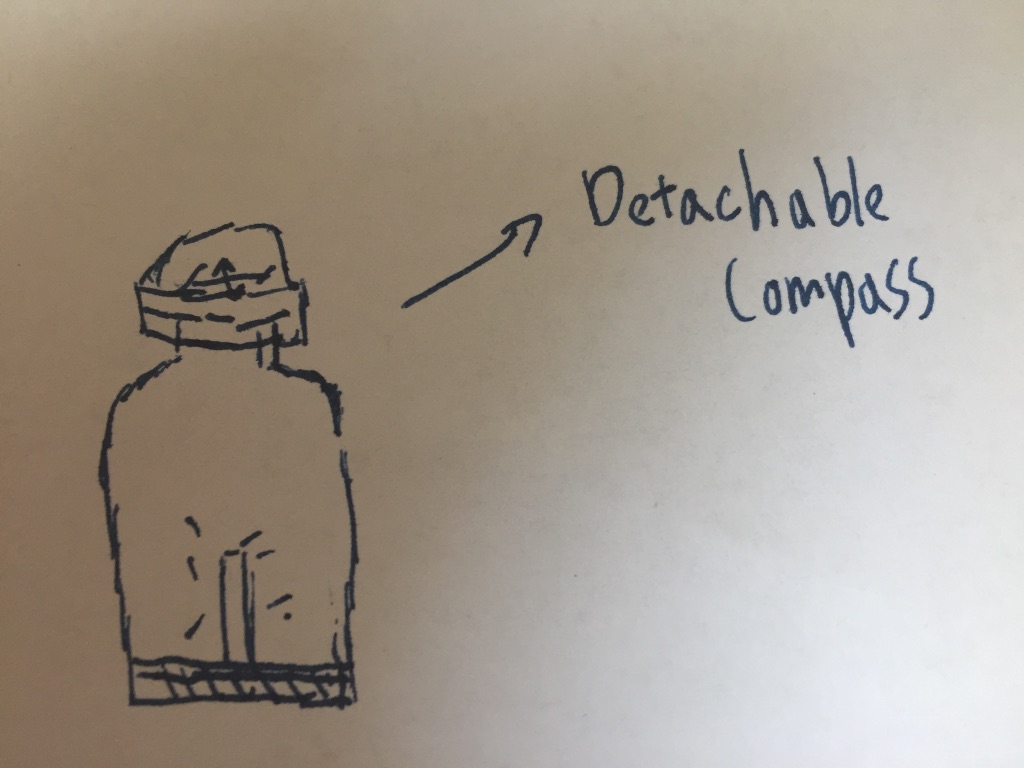 Detachable
Compass